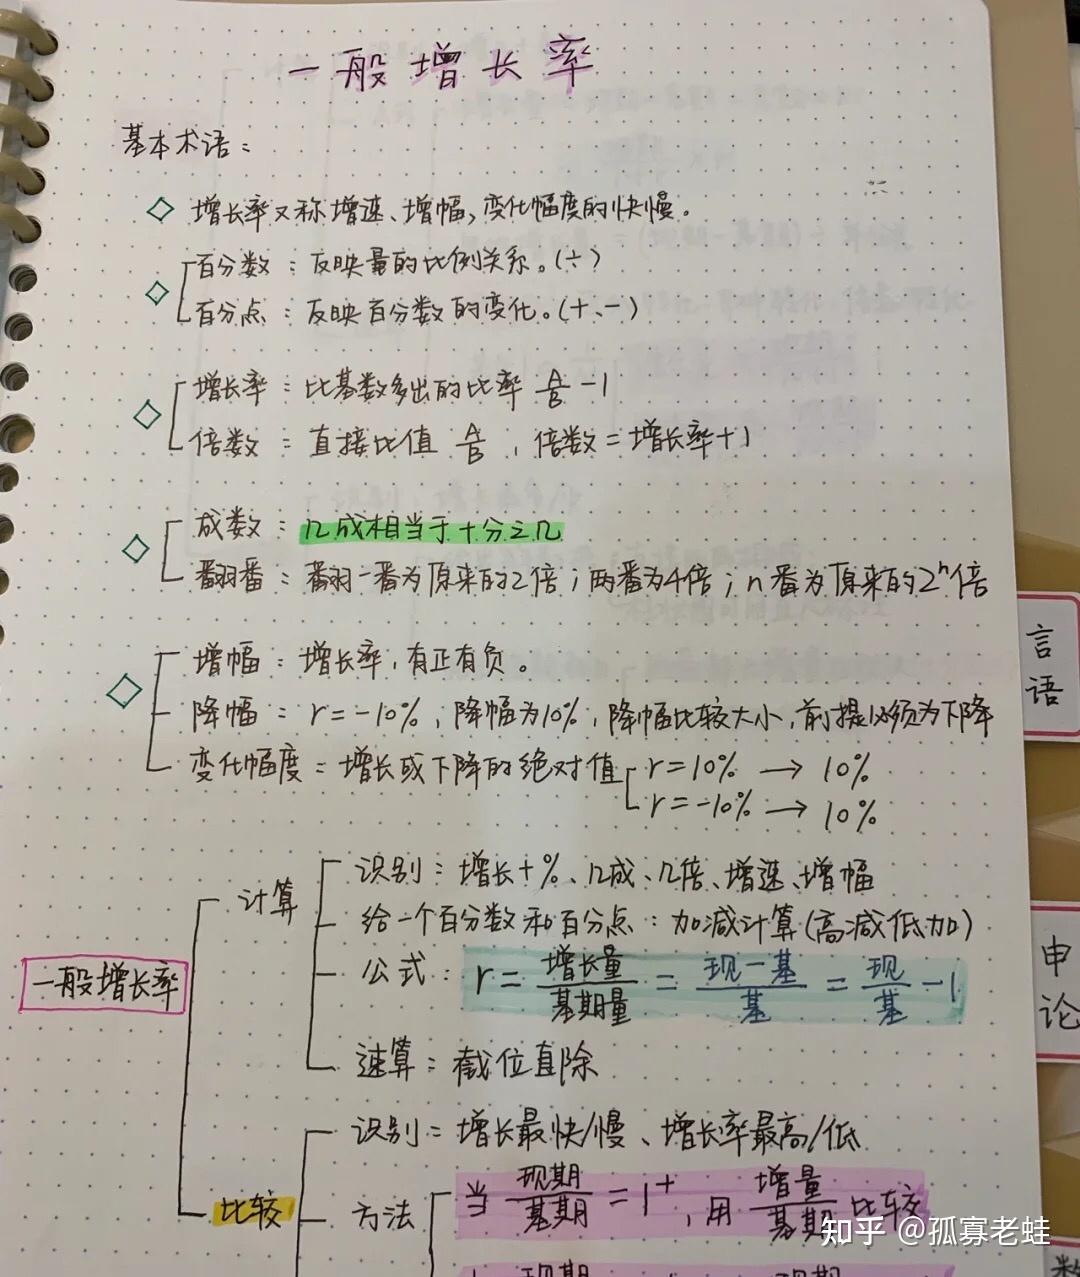 一般增长率
基本术语：
◇ 增长率又称增速、增幅，变化幅度的快慢。
◇ 百分数：反映量的比例关系。(÷)
百分点：反映百分数的变化。(+、-)
◇ 增长率：比基数多出的比率 A/B -1
倍数：直接比值 A/B，倍数=增长率+1
◇ 成数：几成相当于十分之几
翻番：翻一番为原来的2倍；两番为4倍；n番为原来的2ⁿ倍
◇ 增幅：增长率，有正有负。
降幅：r=-10%，降幅为10%，降幅比较大小，前提必须为下降
变化幅度：增长或下降的绝对值 r=10% → 10%
r=-10% → 10%
一般增长率
计算
识别：增长+%、几成、几倍、增速、增幅
给一个百分数和百分点：加减计算(高减低加)
公式：r=增长量/基期量=现-基/基=现/基-1
速算：截位直除
比较
识别：增长最快/慢、增长率最高/低
方法 当 现期/基期=1⁺，用 增量/基期 比较
现期 现期
言语
申论
数
知乎 @孤寡老蛙